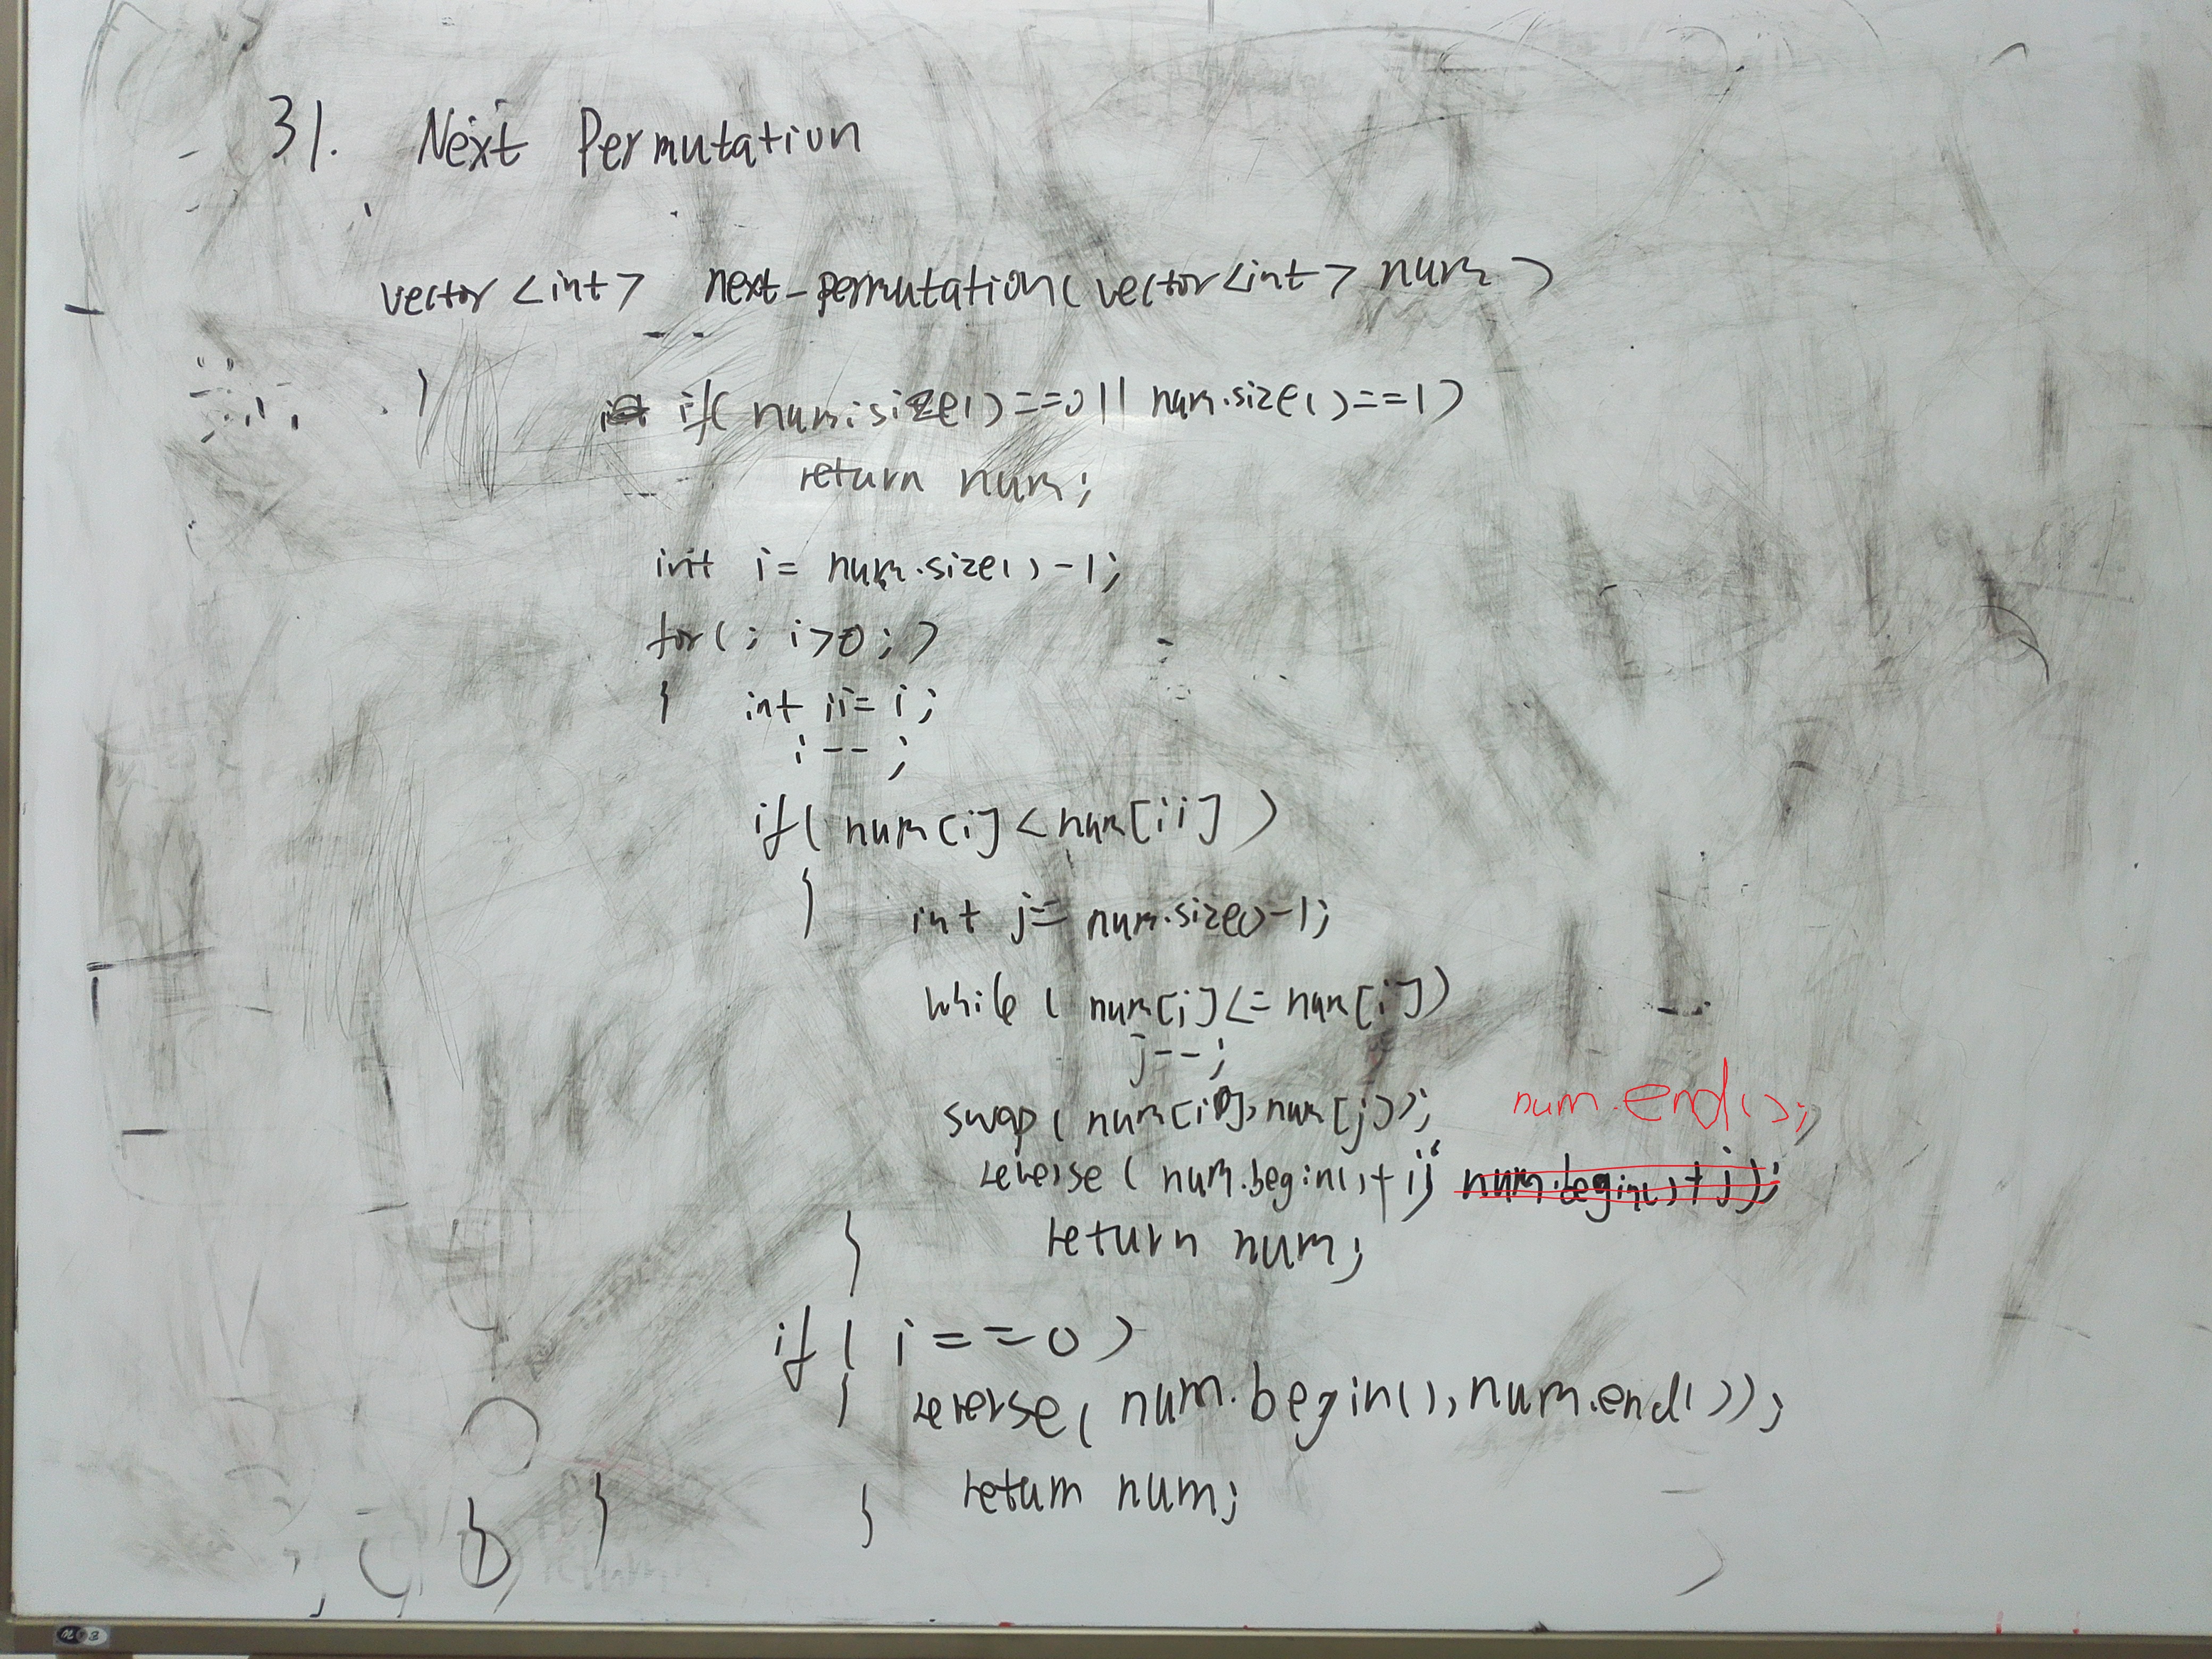 31. Next Permutation
vector <int> next_permutation( vector<int> num )
{ if( num.size()==0 || num.size()==1)
return num;
int i= num.size()-1;
for( ; i>0 ; )
{ int ii= i;
i-- ;
if( num[i] < num[ii] )
{
int j= num.size()-1;
while ( num[j] <= num[i])
j--;
swap( num[i], num[j]); num.end();
reverse ( num.begin()+ii, num.begin()+j);
} return num;
if( i==0 )
{ reverse( num.begin(), num.end());
return num;
} } }